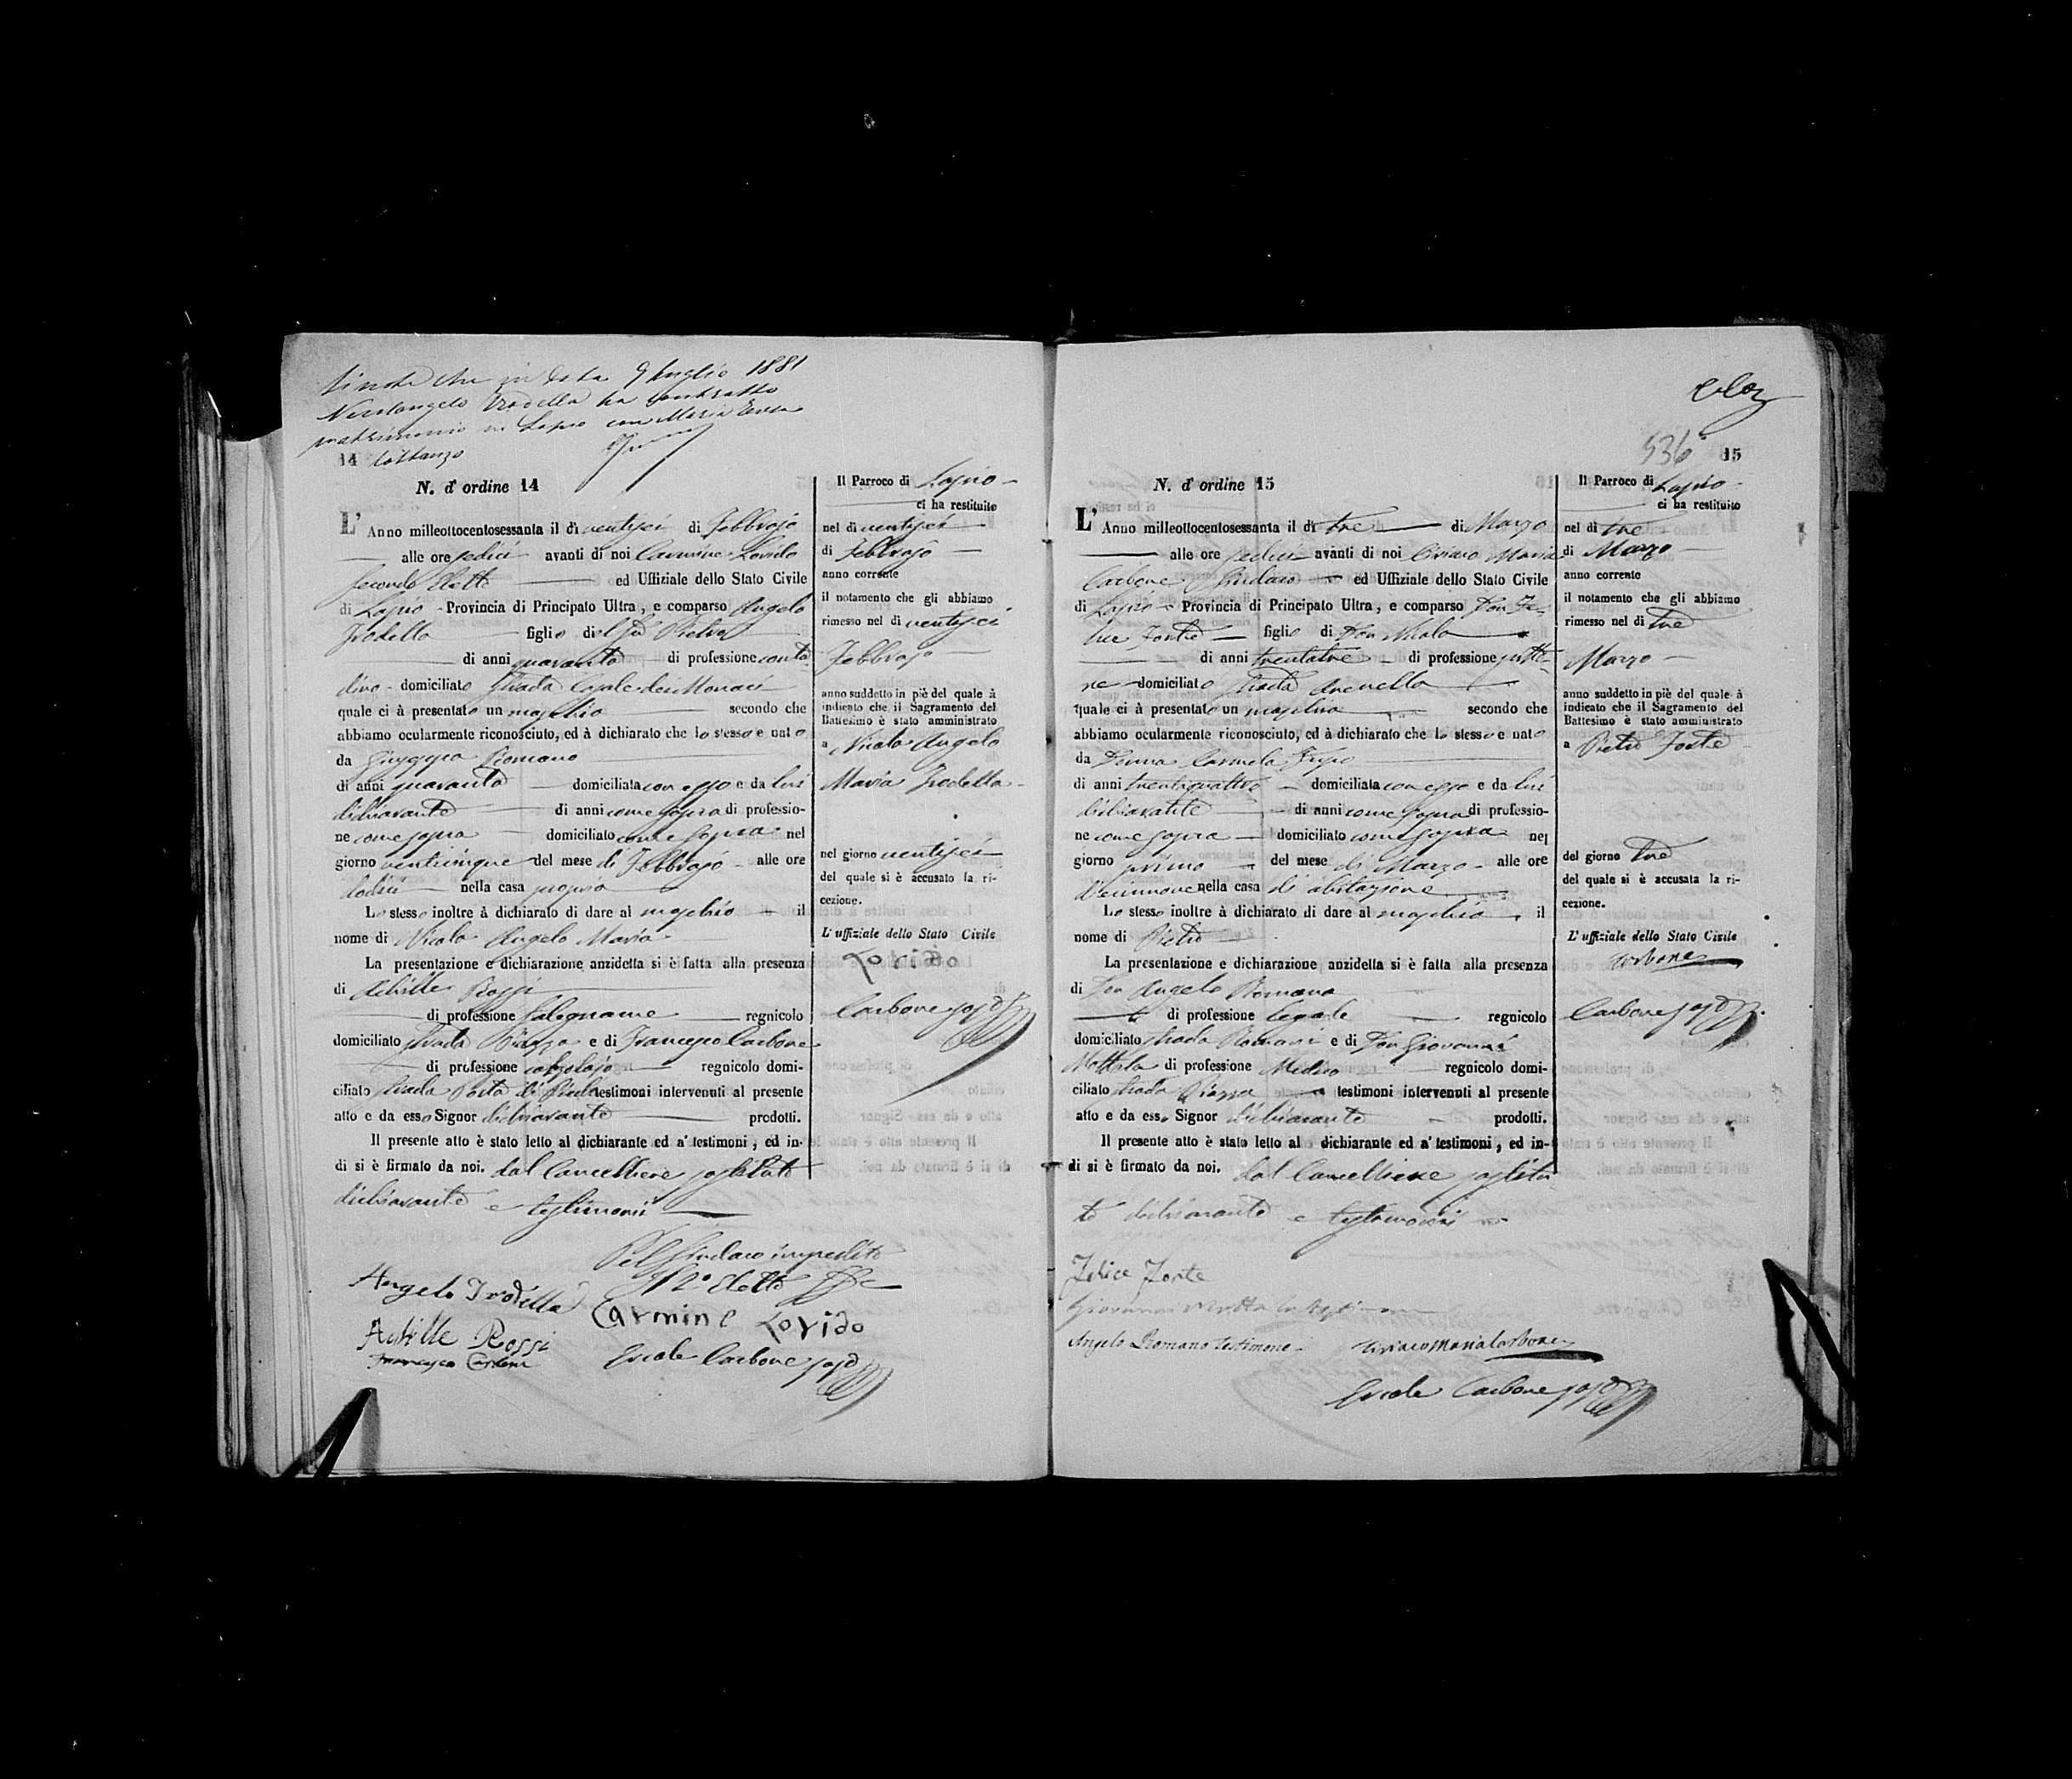 Si nota che in data 9 luglio 1881
Nicolangelo Trodella ha contratto
matrimonio in Lapio con Maria Teresa
Costanzo
14
N. d' ordine 14
L' Anno milleottocentosessanta il dì ventisei di Febbrajo
alle ore sedici avanti di noi Carmine Lovido
Secondo Eletto ed Uffiziale dello Stato Civile
di Lapio Provincia di Principato Ultra, e comparso Angelo
Trodella figlio del fu Pietro
di anni quaranta di professione conta
dino domiciliato Strada Casale dei Monaci
quale ci à presentato un maschio secondo che
abbiamo ocularmente riconosciuto, ed à dichiarato che lo stesso e nato
da Giuseppa Romano
di anni quaranta domiciliata con esso e da lui
dichiarante di anni come sopra di professio-
ne come sopra domiciliato come sopra nel
giorno venticinque del mese di Febbrajo alle ore
dodici nella casa propria
Lo stesso inoltre à dichiarato di dare al maschio il
nome di Nicola Angelo Maria
La presentazione e dichiarazione anzidetta si è fatta alla presenza
di Achille Rossi
di professione falegname regnicolo
domiciliato Strada Piazza e di Francesco Carbone
di professione calzolajo regnicolo domi-
ciliato Strada Porta di testimoni intervenuti al presente
atto e da esso Signor dichiarante prodotti.
Il presente atto è stato letto al dichiarante ed a' testimoni, ed in-
di si è firmato da noi. dal Cancelliere sostituto
dichiarante e testimonii
Pel Sindaco impedito
Il 2° Eletto
Angelo Trodella
Carmine Lovido
Achille Rossi
Francesco Carbone
Ercole Carbone sosto
Il Parroco di Lapio
ci ha restituito
nel dì ventisei
di Febbrajo
anno corrente
il notamento che gli abbiamo
rimesso nel dì ventisei
Febbrajo
anno suddetto in piè del quale à
indicato che il Sagramento del
Battesimo è stato amministrato
a Nicola Angelo
Maria Trodella
nel giorno ventisei
del quale si è accusato la ri-
cezione.
L' uffiziale dello Stato Civile
Lovido
Carbone sosto
536
15
N. d' ordine 15
L' Anno milleottocentosessanta il dì tre di Marzo
alle ore sedici avanti di noi Ciriaco Maria
Carbone Sindaco ed Uffiziale dello Stato Civile
di Lapio Provincia di Principato Ultra, e comparso Don Fe-
lice Forte figlio di Don Nicola
di anni trentatre di professione
ne domiciliato Strada Arenella
quale ci à presentato un maschio secondo che
abbiamo ocularmente riconosciuto, ed à dichiarato che lo stesso e nato
da Donna Carmela
di anni trentaquattro domiciliata con esso e da lui
dichiarante di anni come sopra di professio-
ne come sopra domiciliato come sopra nel
giorno primo del mese di Marzo alle ore
diecinnove nella casa di abitazione
Lo stesso inoltre à dichiarato di dare al maschio il
nome di Pietro
La presentazione e dichiarazione anzidetta si è fatta alla presenza
di Don Angelo Romano
di professione legale regnicolo
domiciliato Strada Romani e di Don Giovanni
Mottola di professione Medico regnicolo domi-
ciliato Strada Piazza testimoni intervenuti al presente
atto e da esso Signor dichiarante prodotti.
Il presente atto è stato letto al dichiarante ed a' testimoni, ed in-
di si è firmato da noi. dal Cancelliere sostitu
to dichiarante e testimonii
Felice Forte
Giovanni Mottola
Angelo Romano testimone
Ciriaco Maria Carbone
Ercole Carbone sosto
Il Parroco di Lapio
ci ha restituito
nel dì tre
di Marzo
anno corrente
il notamento che gli abbiamo
rimesso nel di tre
Marzo
anno suddetto in piè del quale à
indicato che il Sagramento del
Battesimo è stato amministrato
a Pietro Forte
del giorno tre
del quale si è accusata la ri-
cezione.
L' uffiziale dello Stato Civile
Carbone
Carbone sosto